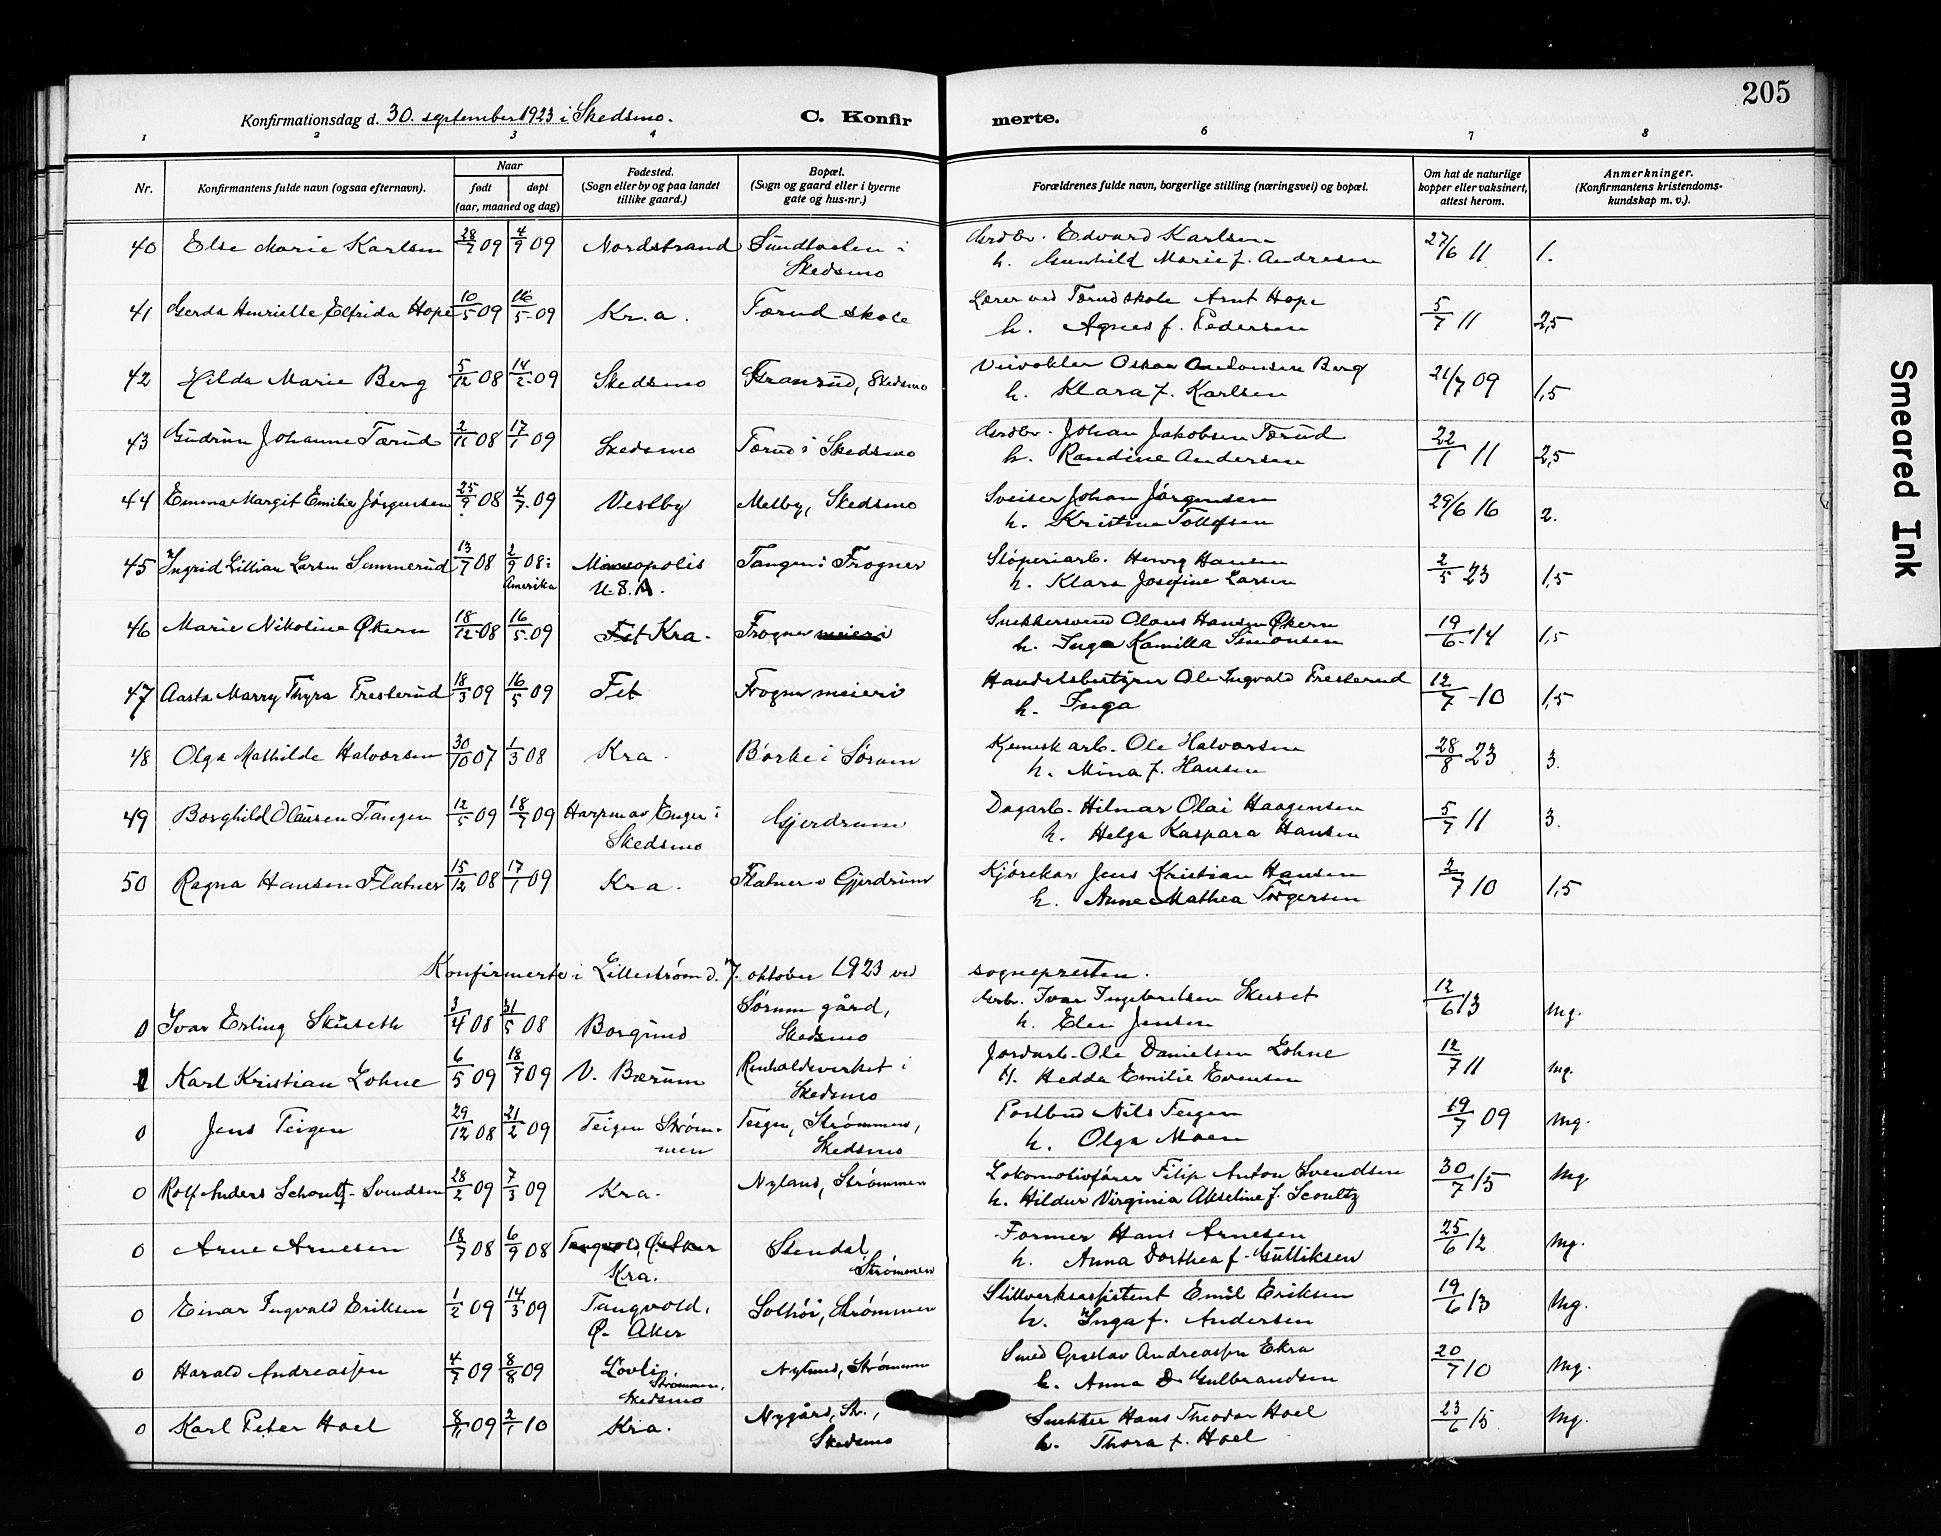 205
Konfirmationsdag d. 30. september 1923 i Skedsmo.
C. Konfirmerte.
1 2 3 4 6 7 8
Nr.
Konfirmantens fulde navn (ogsaa efternavn).
Naar
født døpt
(aar, maaned og dag)
Fødested.
(Sogn eller by og paa landet
tillike gaard.)
Bopæl.
(Sogn og gaard eller i byerne
gate og hus-nr.)
Forældrenes fulde navn, borgerlige stilling (næringsvei) og bopæl.
Om hat de naturlige
kopper eller vaksinert,
attest herom.
Anmerkninger.
(Konfirmantens kristendoms-
kundskap m. v.).
40 Else Marie Karlsen 28/7 09 4/9 09 Nordstrand Sundtoelen i Edvard Karlsen 27/6 11 1.
Skedsmo h. Gunhild Marie f. Andresen
41 Gerda Henriette Elfrida Hope 10/5 09 16/5 09 Kr.a. Tærud skole Lærer ved Tærud skole Arnt Hope 5/7 11 2,5
h. Agnes f. Pedersen
42 Hilda Marie Berg 5/12 08 14/2 09 Skedsmo Granrud, Skedsmo Veivokter Oskar Antonsen Berg 21/7 09 1,5
h. Klara f. Karlsen
43 Gudrun Johanne Tærud 2/11 08 17/1 09 Skedsmo Tærud i Skedsmo Grdbr. Johan Jakobsen Tærud 22/1 11 2,5
h. Randine Andersen
44 Emma Margit Emilie Jørgensen 25/9 08 4/7 09 Vestby Melby, Skedsmo Sveiser Johan Jørgensen 29/6 16 2.
h. Kristine Tollefsen
45 Ingrid Lillian Larsen Sommerud 13/7 08 2/9 08 i Amerika Mineopolis U.S.A. Tangen i Frogner Støperiarb. Henry Hansen 2/5 23 1,5
h. Klara Josefine Larsen
46 Marie Nikoline Økern 18/12 08 16/5 09 Fet Kra. Frogner meieri Snekkersvend Olaus Hansen Økern 19/6 14 1,5
h. Inga Kamilla Simonsen
47 Aasta Marry Thyra Presterud 18/3 09 16/5 09 Fet Frogner meieri Handelsbestyrer Ole Ingvald Presterud 12/7 10 1,5
h. Inga
48 Olga Mathilde Halvorsen 30/10 07 1/3 08 Kra. Børke i Sørum Kjemisk arb. Ole Halvorsen 28/8 23 3.
h. Mina f. Hansen
49 Borghild Olausen Tangen 12/5 09 18/7 09 Harpmar Enger i Gjerdrum Dagarb. Hilmar Olai Haagensen 5/7 11 3.
Skedsmo h. Helga Kaspara Hansen
50 Ragna Hansen Flatner 15/12 08 17/1 09 Kra. Flatner i Gjerdrum Kjørekar Jens Kristian Hansen 2/7 10 1,5
h. Anne Mathea Torgersen
Konfirmerte i Lillestrøm d. 7. oktober 1923 ved sognepresten.
0 Ivar Erling Skuseth 3/4 08 31/5 08 Borgund Sørum gård, Ivar Ingebretsen Skuset 12/6 13 Mg.
Skedsmo h. Elen Jensen
1 Karl Kristian Lohne 6/5 09 18/7 09 V. Bærum Renholdsverket i Jordarb. Ole Danielsen Lohne 12/7 11 Mg.
Skedsmo H. Hedda Emilie Evensen
0 Jens Teigen 29/12 08 21/2 09 Teigen Strøm- Teigen, Strømmen, Postbud Nils Teigen 19/7 09 Mg.
men Skedsmo h. Olga Moen
0 Rolf Anders Schoultz-Svendsen 28/2 09 7/3 09 Kra. Nyland, Strømmen Lokomotivfører Filip Anton Svendsen 30/7 15 Mg
h. Hildur Virginia Akseline f. Scoultz
0 Arne Arnesen 18/7 08 6/9 08 Tangvold, Ø. Aker Stendal, Former Hans Arnesen 25/6 12 Mg.
Kra. Strømmen h. Anna Dorthea f. Gulliksen
0 Einar Ingvald Eriksen 1/2 09 14/3 09 Tangvold, Solhøi, Strømmen Stillverksassistent Emil Eriksen 19/6 13 Mg.
Ø. Aker h. Inga f. Andersen
0 Harald Andreassen 4/7 09 8/8 09 Løvli, Nylund, Strømmen Smed Gustav Andreassen Ekra 20/7 10 Mg.
Strømmen, Skedsmo h. Anna D. Gulbrandsen
0 Karl Peter Hoel 8/11 09 2/1 10 Kra. Nygård, St., Snekker Hans Theodor Hoel 23/6 15 Mg.
Skedsmo h. Thora f. Hoel
Smeared Ink